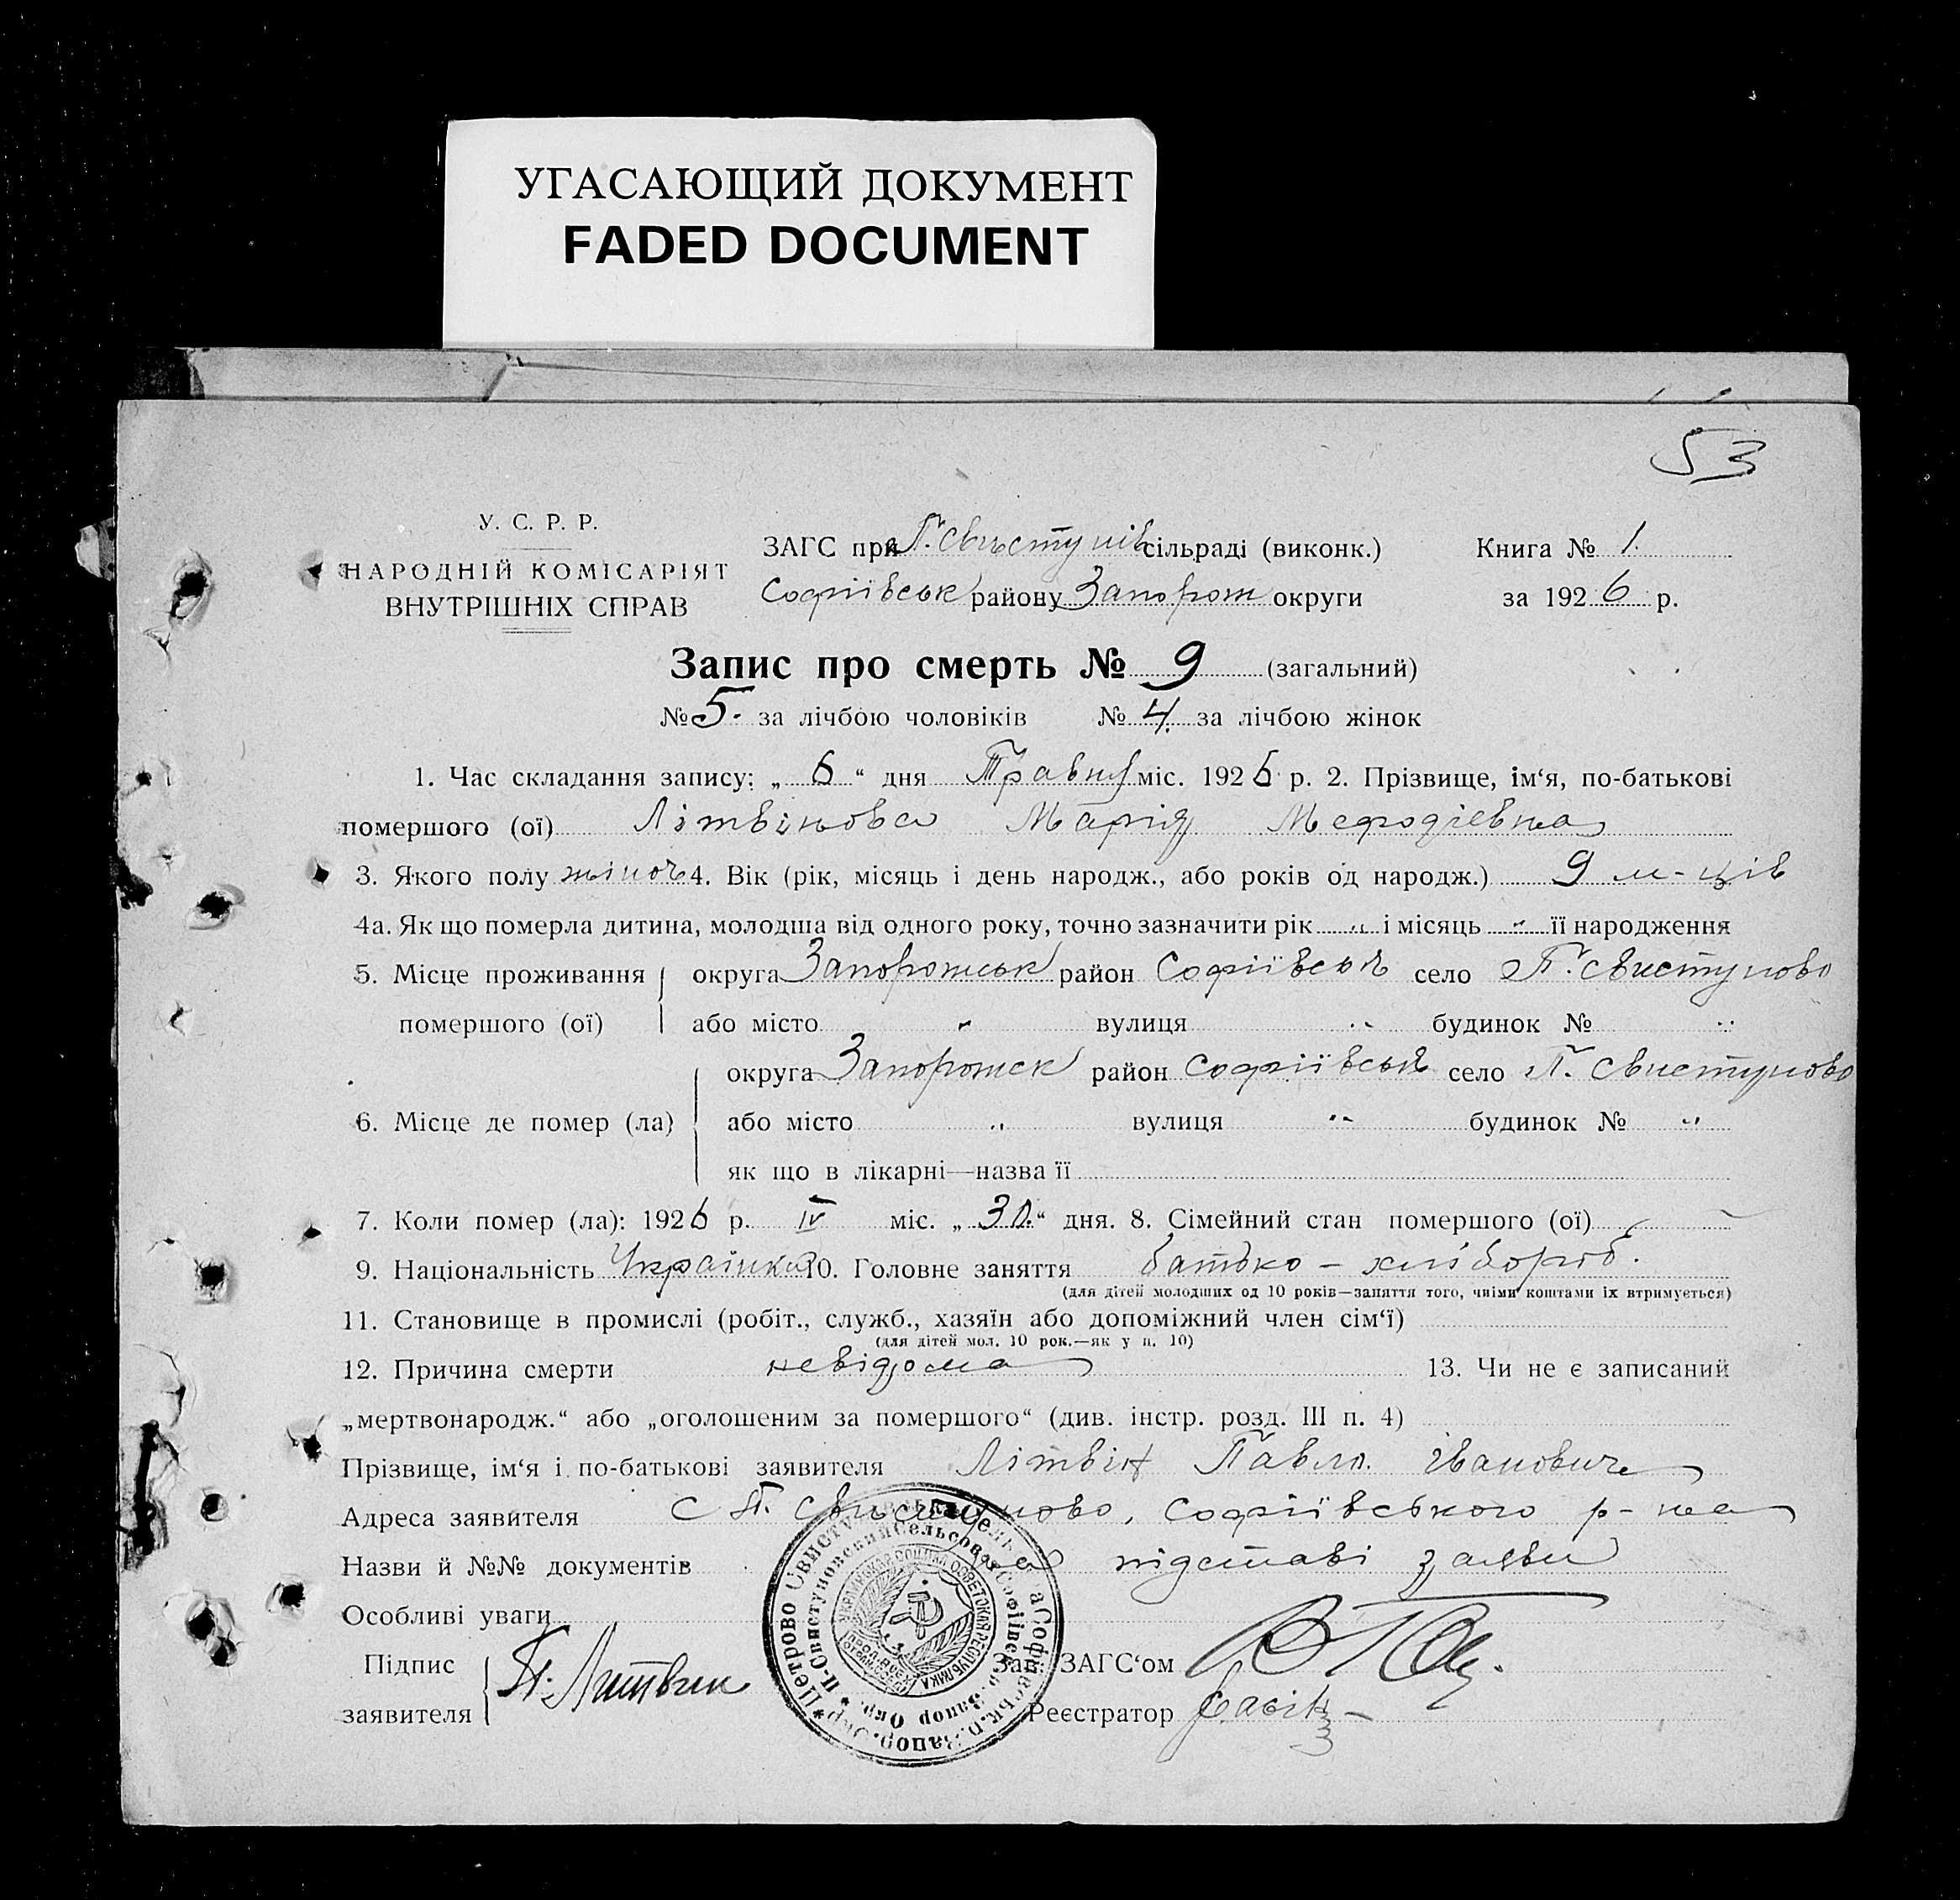 УГАСАЮЩИЙ ДОКУМЕНТ
FADED DOCUMENT
53
У. С. Р. Р.
НАРОДНІЙ КОМІСАРІЯТ
ВНУТРІШНІХ СПРАВ
ЗАГС при П. Свистунів сільраді (виконк.)
Софіївськ району Запорож округи
Книга № 1.
за 1926 р.
Запис про смерть № 9 (загальний)
№ 5. за лічбою чоловіків № 4. за лічбою жінок
1. Час складання запису: „ 6 “ дня Травня міс. 1926 р. 2. Прізвище, ім‘я, по-батькові
помершого (ої) Літвінова Марія Мефодіевна
3. Якого полу жіноч 4. Вік (рік, місяць і день народж., або років од народж.) 9 м-ців
4а. Як що померла дитина, молодша від одного року, точно зазначити рік „ і місяць „ її народження
5. Місце проживання округа Запорожськ район Софіївськ село П. Свистуново
помершого (ої) або місто „ вулиця „ будинок № „
округа Запорожск район Софіївськ село П. Свистуново
6. Місце де помер (ла) або місто „ вулиця „ будинок № „
як що в лікарні—назва її
7. Коли помер (ла): 1926 р. IV міс. „ 30. “ дня. 8. Сімейний стан помершого (ої) —
9. Національність Українка 10. Головне заняття батько – хлібороб.
(для дітей молодших од 10 років—заняття того, чиїми коштами їх втримується)
11. Становище в промислі (робіт., служб., хазяїн або допоміжний член сім‘ї)
(для дітей мол. 10 рок.—як у п. 10)
12. Причина смерти невідома 13. Чи не є записаний
„мертвонародж.“ або „оголошеним за помершого“ (див. інстр. розд. III п. 4)
Прізвище, ім‘я і по-батькові заявителя Літвін Павло Іванович
Адреса заявителя с П. Свистуново, Софіївського р-на
Назви й №№ документів на підставі заяви
Особливі уваги
Підпис
заявителя П. Литвин
Зав. ЗАГС‘ом
Реєстратор